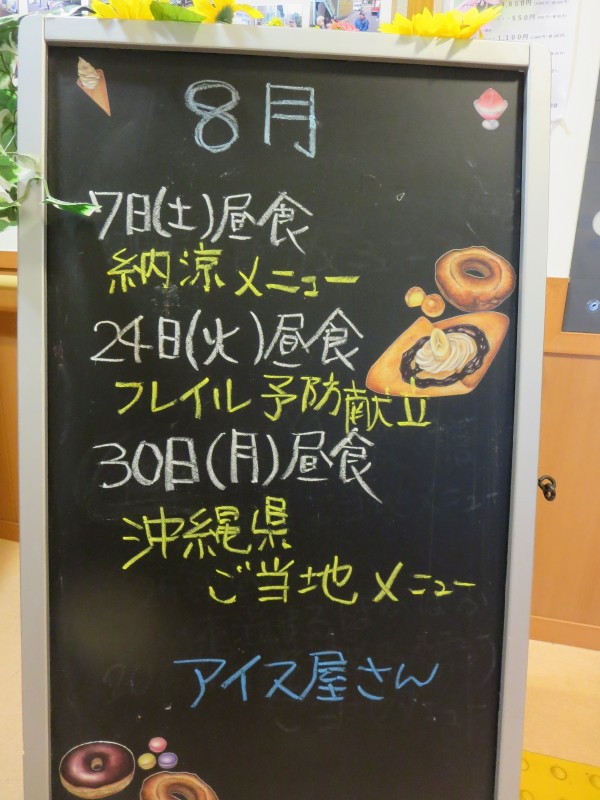 8月
7日(土)昼食
納涼メニュー
24日(火)昼食
フレイル予防献立
30日(月)昼食
沖縄県
ご当地メニュー
アイス屋さん